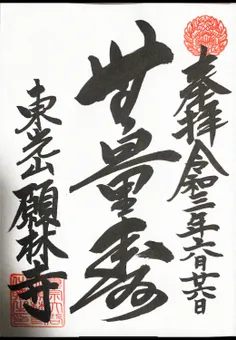 奉拝 令和三年六月廿六日
無量寿
東光山 願林寺